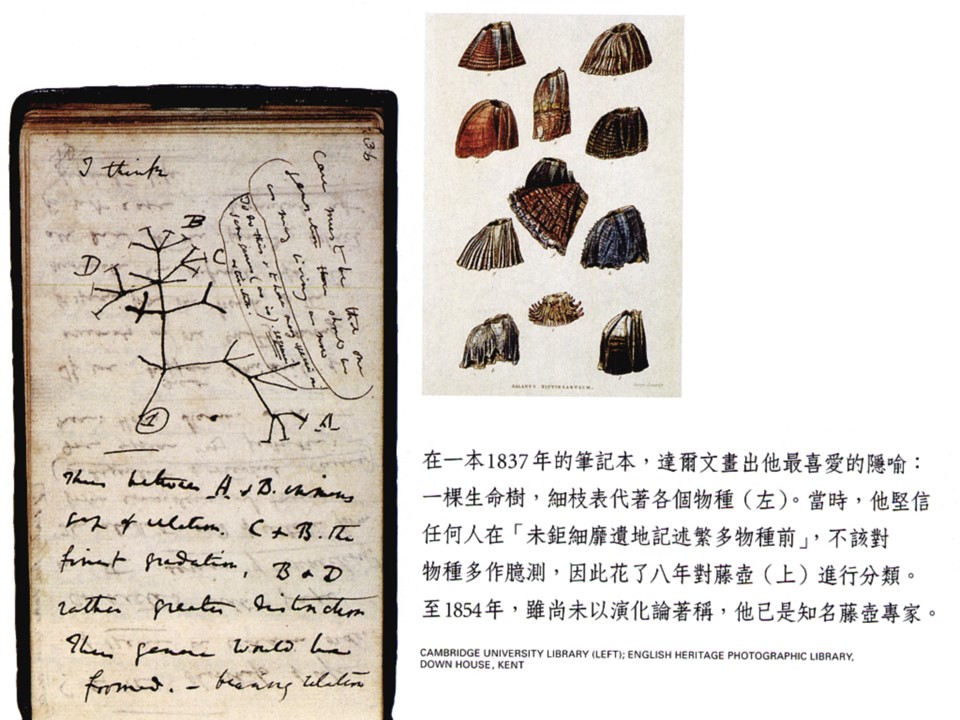 36
I think
Case must be that one
generation then should be
as many living as now
To do this & to have many species in
same genus (as is) requires
extinction.
B
C
D
A
1
Thus between A & B. immense
gap of relation. C & B. the
finest gradation, B & D
rather greater distinction
Thus genera would be
formed. — bearing relation
BALANUS TINTINNABULUM.
在一本1837年的筆記本，達爾文畫出他最喜愛的隱喻：
一棵生命樹，細枝表代著各個物種（左）。當時，他堅信
任何人在「未鉅細靡遺地記述繁多物種前」，不該對
物種多作臆測，因此花了八年對藤壺（上）進行分類。
至1854年，雖尚未以演化論著稱，他已是知名藤壺專家。
CAMBRIDGE UNIVERSITY LIBRARY (LEFT); ENGLISH HERITAGE PHOTOGRAPHIC LIBRARY,
DOWN HOUSE, KENT